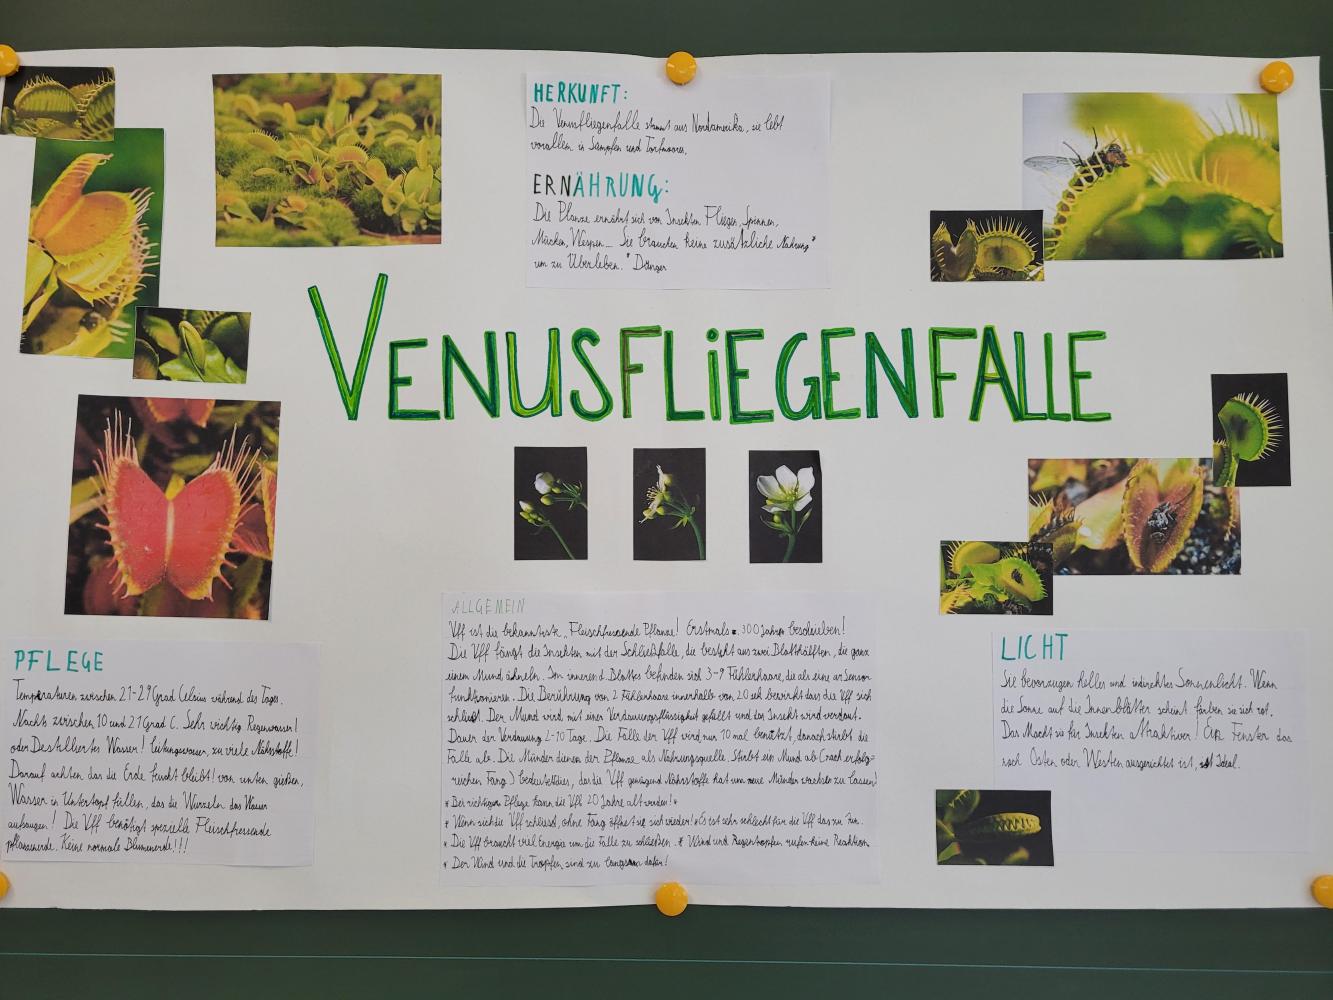 HERKUNFT:
Die Venusfliegenfalle stammt aus Nordamerika, sie lebt
vorallen in Sümpfen und Torfmoore.
ERNÄHRUNG:
Die Planze ernährt sich von Insekten Fliegen, Spinnen,
Mücken, Wespen... Sie brauchen keine zusätzliche Nahrung*
um zu Überleben. * Dünger
VENUSFLiEGENFALLE
PFLEGE
Temperaturen zwischen 21-29 Grad Celsius während des Tages.
Nachts zwischen 10 und 21 Grad C. Sehr wichtig Regenwasser!
oder Destilliertes Wasser! Leitungswasser, zu viele Nährstoffe!
Darauf achten das die Erde feucht bleibt! von unten gießen,
Wasser in Untertopf füllen, das die Wurzeln das Wasser
aufsaugen! Die Vff benötigt spezielle Fleischfressende
pflanzenerde. Keine normale Blumenerde!!!
ALLGEMEIN
Vff ist die bekannteste „Fleischfressende Pflanze! Erstmals 300 Jahren beschrieben!
Die Vff fängt die Insekten mit der Schließfalle, die besteht aus zwei Blatthälften, die ganz
einem Mund ähneln. Im inneren d Blattes befinden sich 3-9 Fühlerhaare, die als eine ar Sensor
funktionieren. Die Berührung von 2 Fühlerhaare innerhalb von 20 sek bewirkt dass die Vff sich
schließt. Der Mund wird mit einer Verdauungsflüssigkeit gefüllt und das Insekt wird verdaut.
Dauer der Verdauung 2-10 Tage. Die Falle der Vff wird nur 10 mal benützt, danach stirbt die
Falle ab. Die Münder dienen der Pflanze als Nahrungsquelle. Stirbt ein Mund ab (nach erfolg-
reichen Fang) bedeutet dies, das die Vff genügend Nährstoffe hat um neue Münder wachsen zu lassen!
* Bei richtigem Pflege kann die Vff 20 Jahre alt werden! *
* Wenn sich die Vff schliesst, ohne Fang öffnet sie sich wieder! Es ist sehr schlecht für die Vff das zu tun.
* Die Vff braucht viel Energie um die Falle zu schließen. * Wind und Regentropfen rufen keine Reaktion
* Der Wind und die Tropfen sind zu langsam dafür!
LICHT
Sie bevorzugen helles und indirektes Sonnenlicht. Wenn
die Sonne auf die Innenblätter scheint färben sie sich rot.
Das Macht sie für Insekten attraktiver! Ein Fenster das
nach Osten oder Westen ausgerichtet ist, ist Ideal.